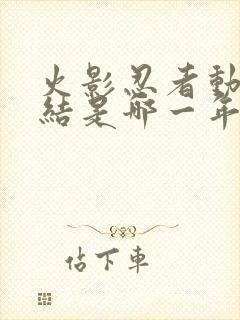 火影忍者動
結是哪一年
佔下車